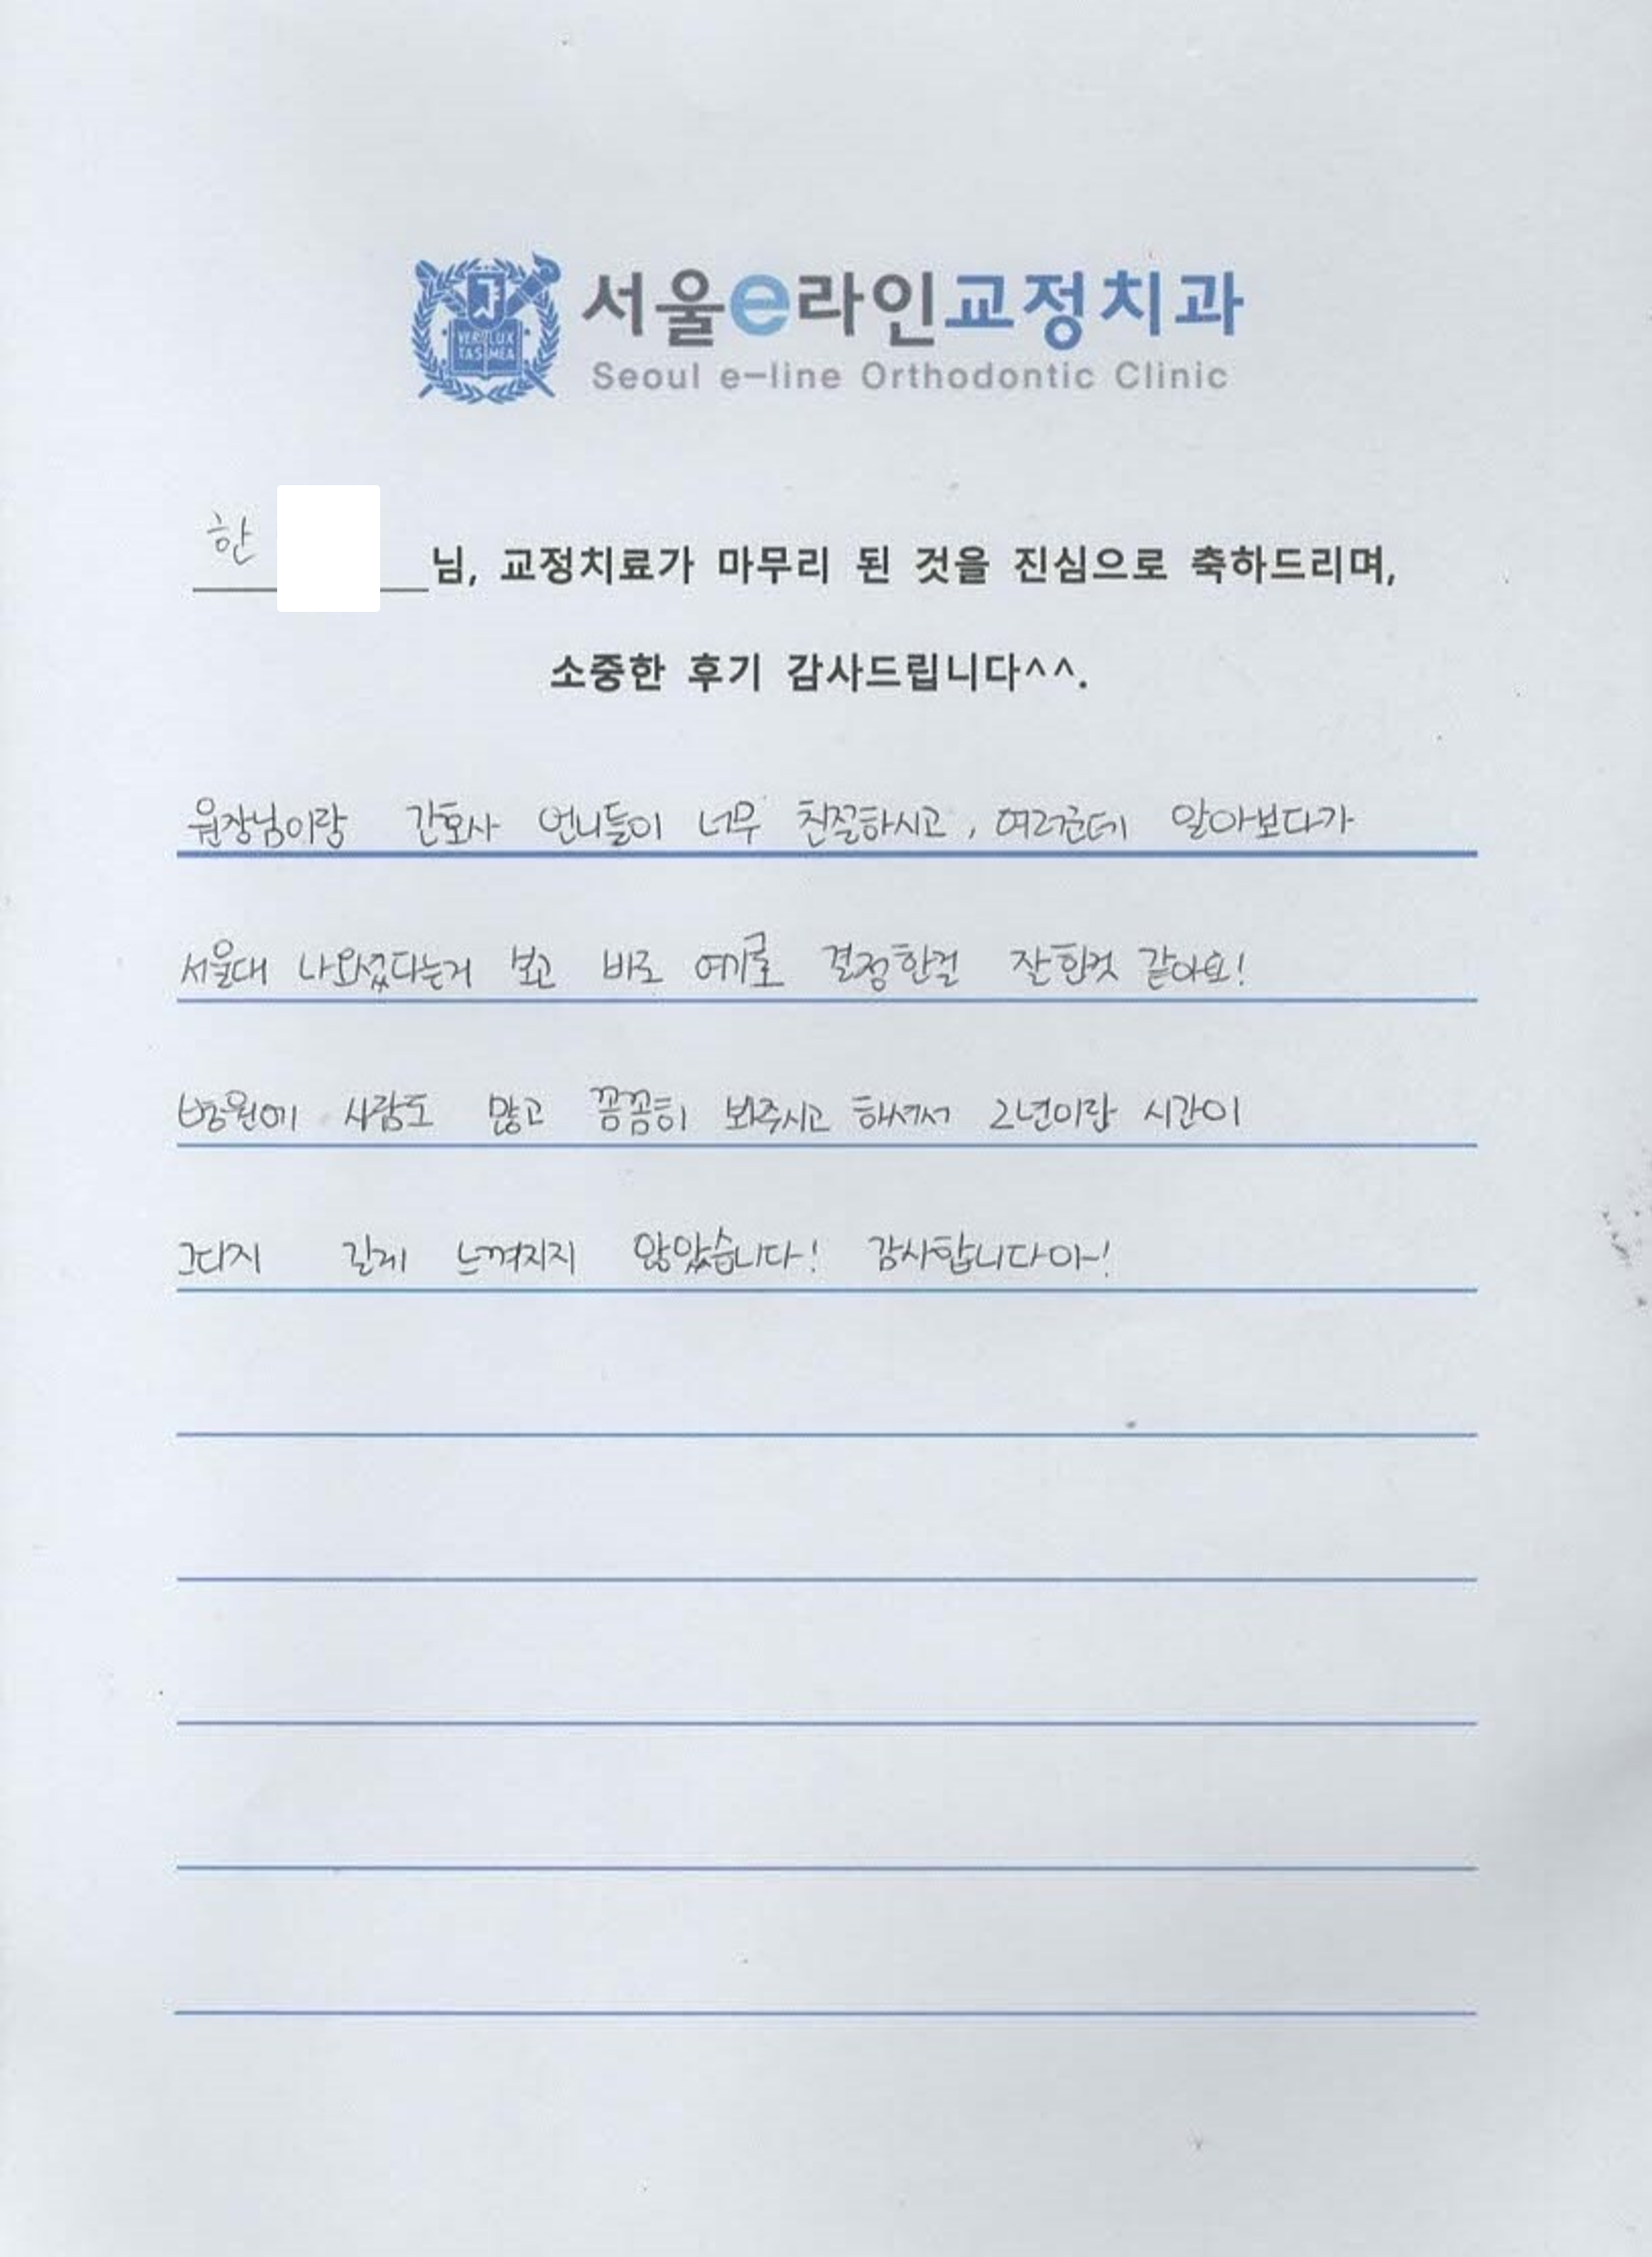 VERI LUX TAS MEA
서울e라인교정치과
Seoul e-line Orthodontic Clinic
한 님, 교정치료가 마무리 된 것을 진심으로 축하드리며,
소중한 후기 감사드립니다^^.
원장님이랑 간호사 언니들이 너무 친절하시고, 여러군데 알아보다가
서울대 나오셨다는거 보고 바로 여기로 결정한걸 잘한것 같아요!
병원에 사람도 많고 꼼꼼히 봐주시고 하셔서 2년이란 시간이
그다지 길게 느껴지지 않았습니다! 감사합니다아~!